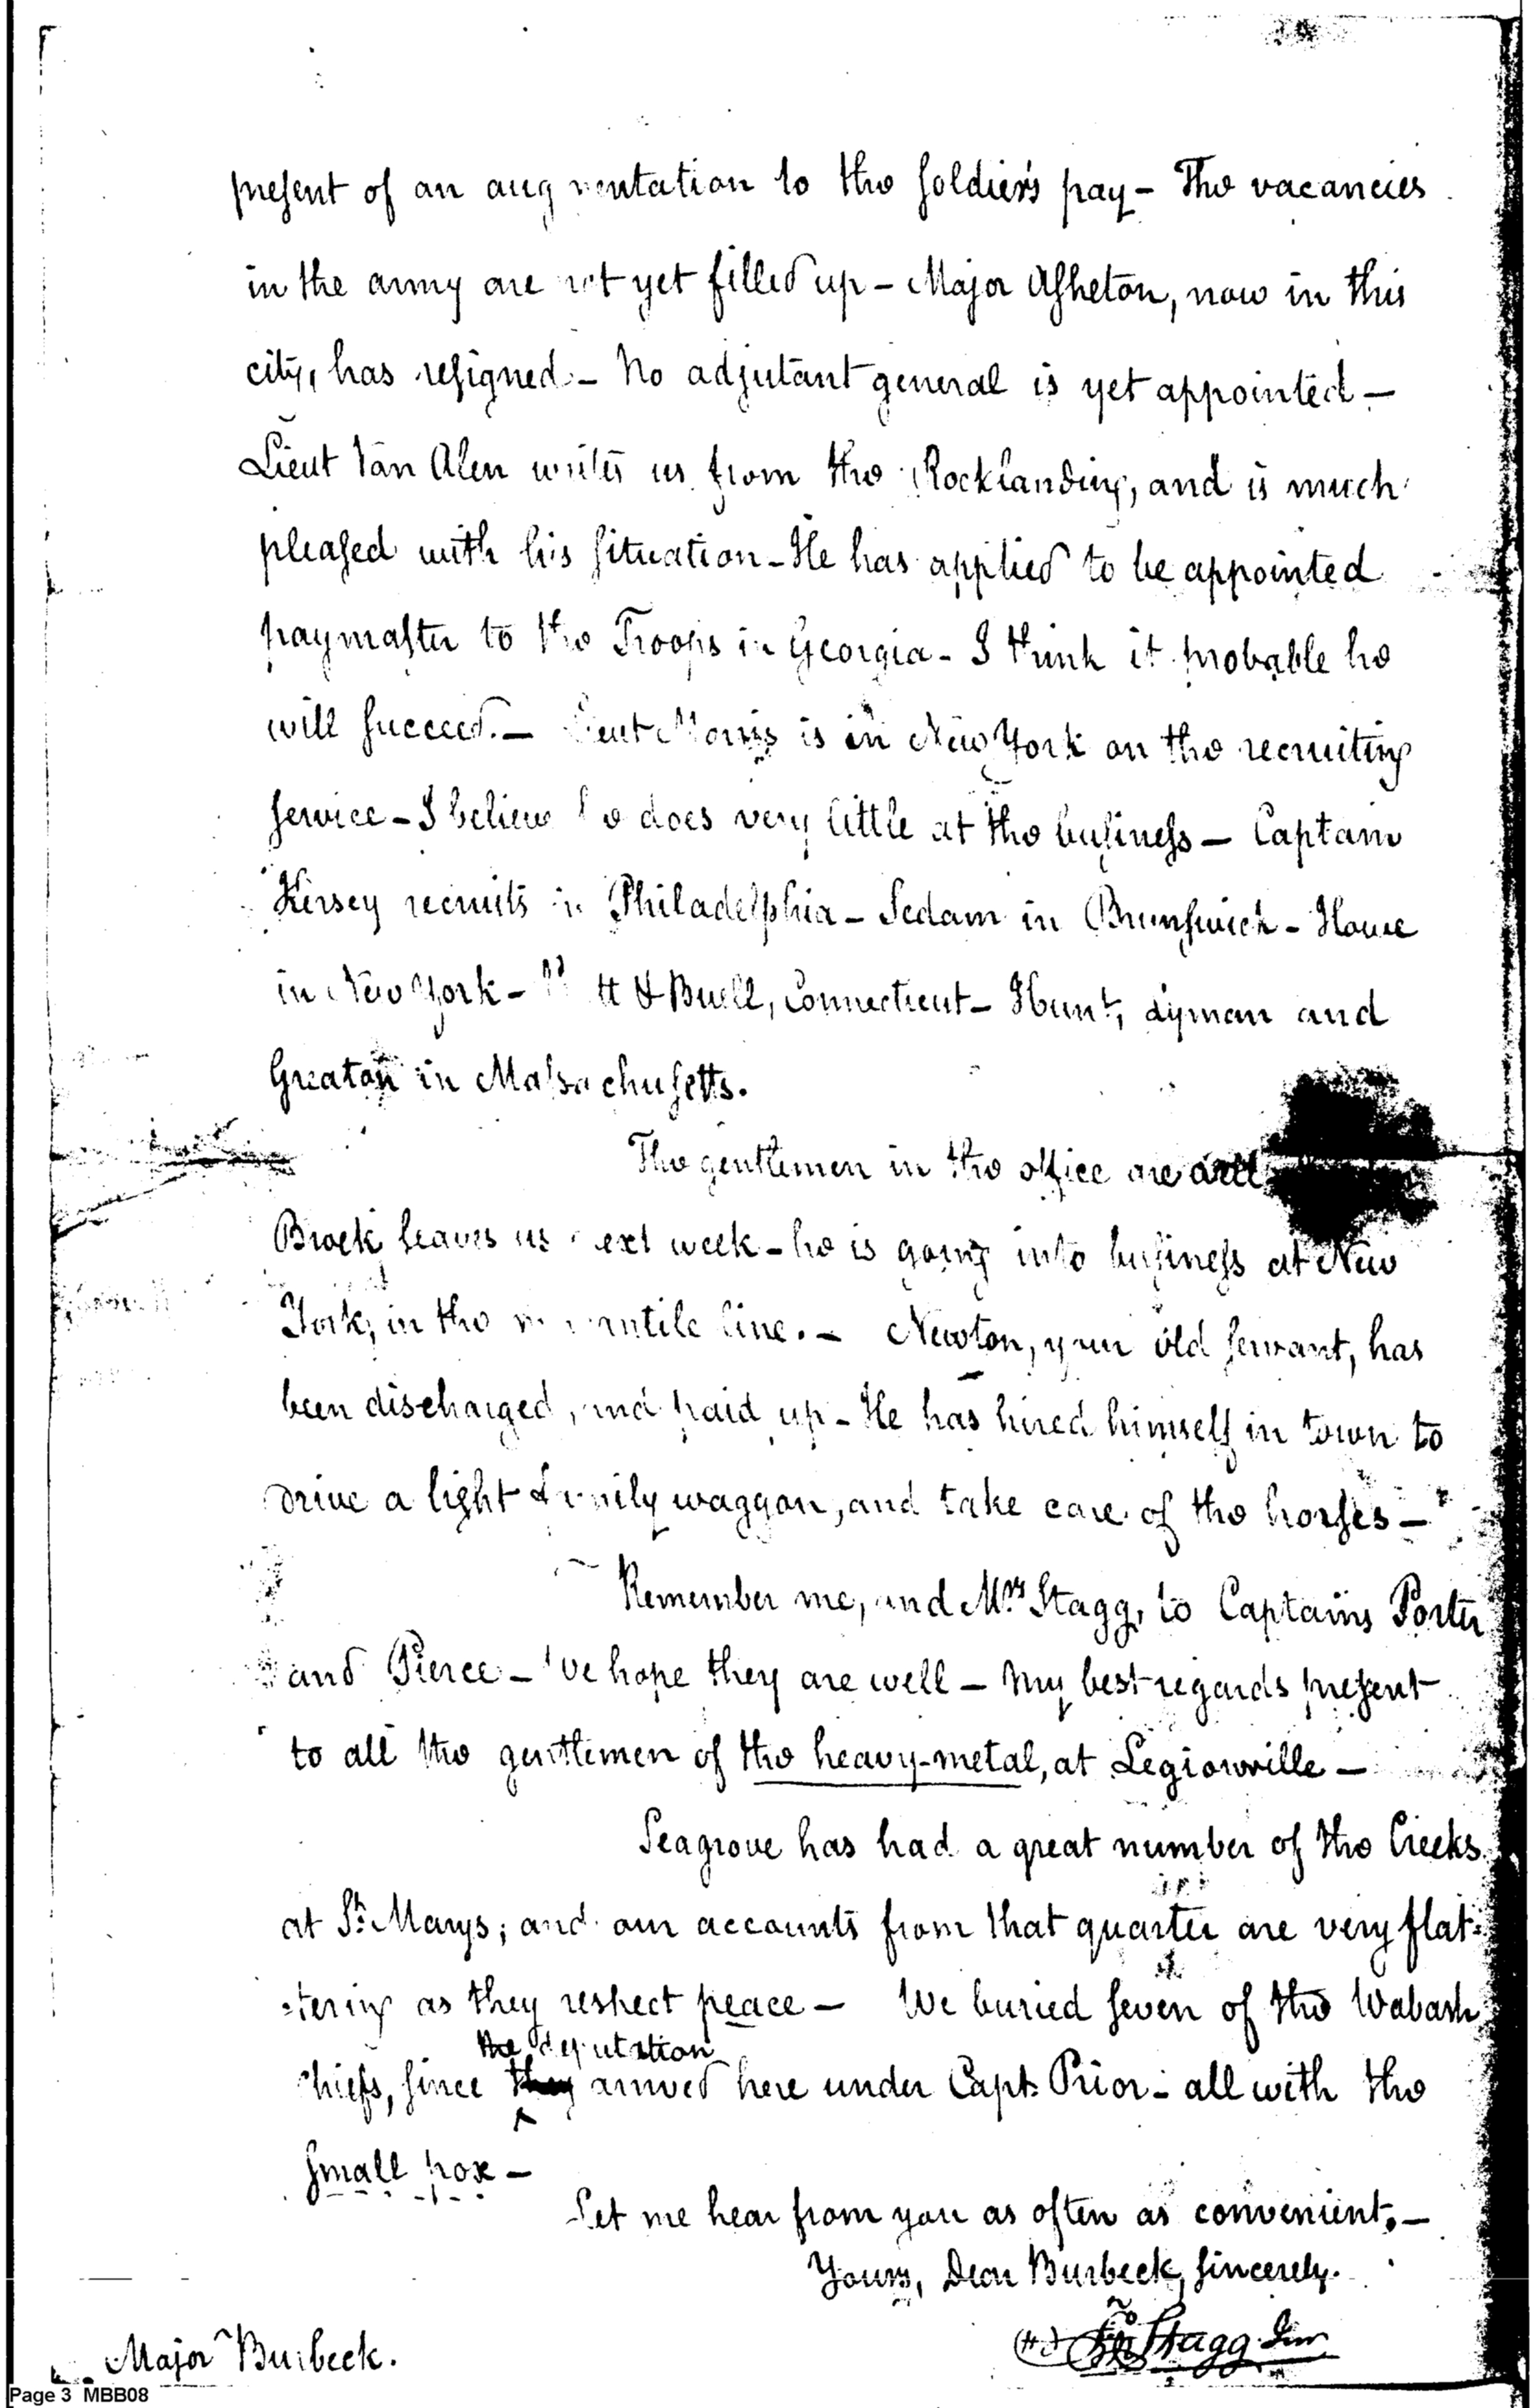 present of an augmentation to the soldier's pay – The vacancies
in the army are not yet filled up – Major Asheton, now in this
city, has resigned – No adjutant general is yet appointed –
Lieut Van Alen writes us from the Rocklanding, and is much
pleased with his situation – He has applied to be appointed
paymaster to the Troops in Georgia – I think it probable he
will succeed. – Lieut Morris is in New York on the recruiting
service – I believe he does very little at the business – Captain
Kersey recruits in Philadelphia – Sedam in Brunswick – Howe
in New York – & Buell, Connecticut – Hunt, Lyman and
Greaton in Massachusetts.
The gentlemen in the office are all
Brock leaves us next week – he is going into business at New
York, in the mercantile line. – Newton, your old servant, has
been discharged, and paid up – He has hired himself in town to
drive a light family waggon, and take care of the horses –
Remember me, and Mrs Stagg, to Captains Porter
and Pierce – We hope they are well – My best regards present
to all the gentlemen of the heavy-metal, at Legionville –
Seagrove has had a great number of the Creeks
at St. Marys; and our accounts from that quarter are very flat=
=tering as they respect peace – We buried seven of the Wabash
the deputation
Chiefs, since they arrived here under Capt. Prior – all with the
small pox –
Let me hear from you as often as convenient. –
Yours, Dear Burbeck, sincerely.
Stagg Jun
Major Burbeck.
Page 3 MBB08